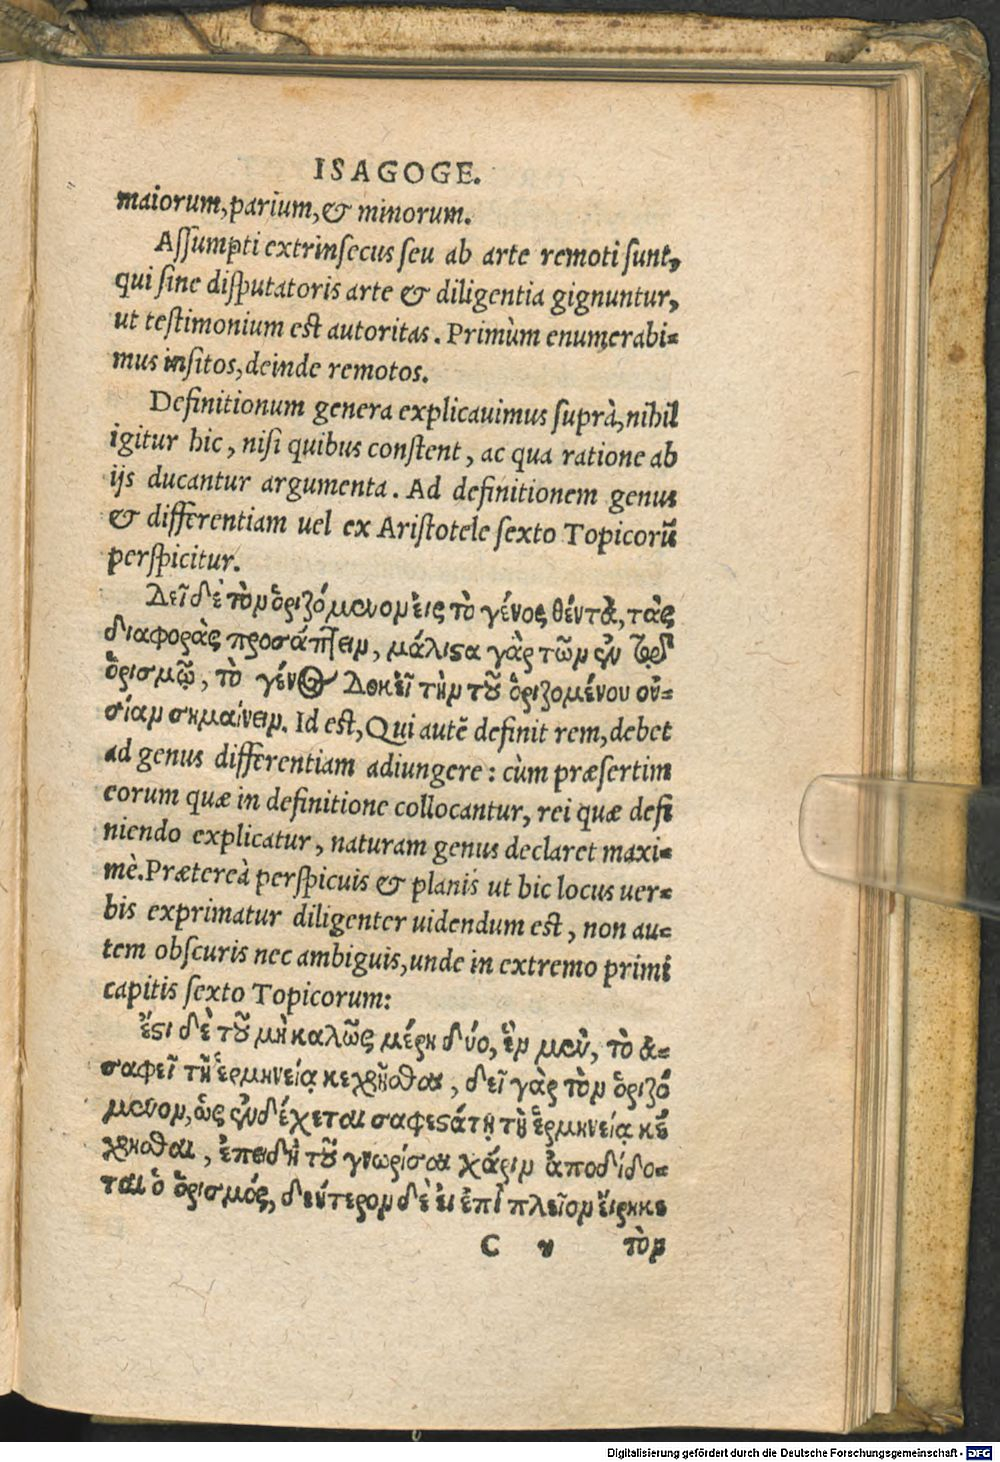 ISAGOGE.
maiorum, parium, & minorum.
Assumpti extrinsecus seu ab arte remoti sunt,
qui sine disputatoris arte & diligentia gignuntur,
ut testimonium est autoritas. Primùm enumerabi=
mus insitos, deinde remotos.
Definitionum genera explicauimus suprà, nihil
igitur hic, nisi quibus constent, ac qua ratione ab
ijs ducantur argumenta. Ad definitionem genus
& differentiam uel ex Aristotele sexto Topicorũ
perspicitur.
Δεῖ δὲ τὸν ὁριζόμενον εἰς τὸ γένος θέντα, τὰς
διαφορὰς προσάπτειν, μάλιϛα γὰρ τῶν ἐν τῷ
ὁρισμῷ, τὸ γένος δοκεῖ τὴν τοῦ ὁριζομένου οὐ=
σίαν σημαίνειν. Id est, Qui autẽ definit rem, debet
ad genus differentiam adiungere: cùm præsertim
eorum quæ in definitione collocantur, rei quæ defi
niendo explicatur, naturam genus declaret maxi=
mè. Prætereà perspicuis & planis ut hic locus uer=
bis exprimatur diligenter uidendum est, non au=
tem obscuris nec ambiguis, unde in extremo primi
capitis sexto Topicorum:
ἔϛι δὲ τοῦ μὴ καλῶς μέρη δύο, ἓν μὲν, τὸ ἀ=
σαφεῖ τῇ ἑρμηνείᾳ κεχρῆσθαι, δεῖ γὰρ τὸν ὁριζό
μενον, ὡς ἐνδέχεται σαφεϛάτῃ τῇ ἑρμηνείᾳ κε
χρῆσθαι, ἐπειδὴ τοῦ γνωρίσαι χάριν ἀποδίδο=
ται ὁ ὁρισμός, δεύτερον δὲ εἰ ἐπὶ πλεῖον εἴρηκε
C v τὸν
Digitalisierung gefördert durch die Deutsche Forschungsgemeinschaft - DFG